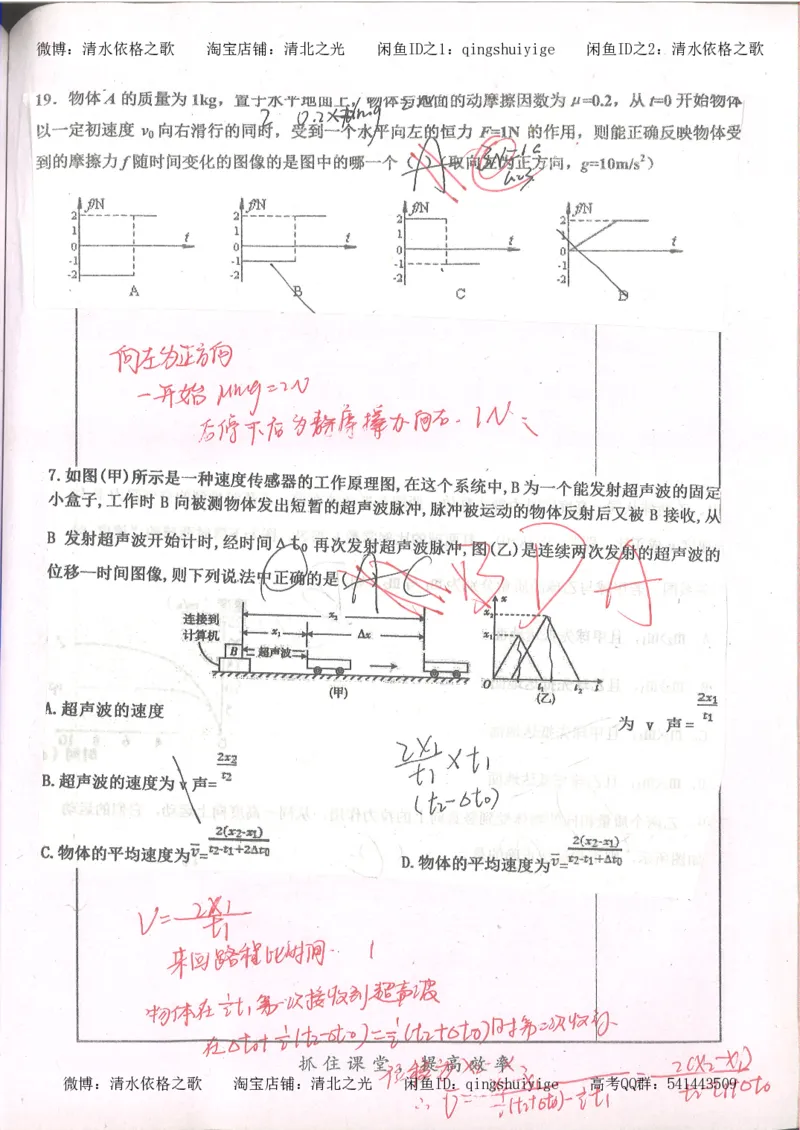 微博：清水依格之歌 淘宝店铺：清北之光 闲鱼ID之1：qingshuiyige 闲鱼ID之2：清水依格之歌
19．物体 A 的质量为 1kg，置于水平地面上，物体与地面的动摩擦因数为 μ=0.2，从 t=0 开始物体
以一定初速度 v₀ 向右滑行的同时，受到一个水平向左的恒力 F=1N 的作用，则能正确反映物体受
到的摩擦力 f 随时间变化的图像的是图中的哪一个（ ）（取向左为正方向，g=10m/s²）
f/N f/N f/N f/N
2 2 2 2
1 1 1 1
0 t 0 t 0 t 0 t
-1 -1 -1 -1
-2 -2 -2 -2
A B C D
向左为正方向
一开始 μmg=2N
后停下后为静摩擦力向右. 1N
7.如图(甲)所示是一种速度传感器的工作原理图,在这个系统中,B为一个能发射超声波的固定
小盒子,工作时 B 向被测物体发出短暂的超声波脉冲,脉冲被运动的物体反射后又被 B 接收,从
B 发射超声波开始计时,经时间Δt₀再次发射超声波脉冲,图(乙)是连续两次发射的超声波的
位移—时间图像,则下列说法中正确的是(
连接到
计算机
x₂
x₁ Δx
B 超声波
(甲)
x
x₂
x₁
O t₁ t₂ t
(乙)
A.超声波的速度 为 v 声=2x₁/t₁
B.超声波的速度为 v 声=2x₂/t₂
2x₁/t₁ × t₁
(t₂-Δt₀)
C.物体的平均速度为v̅=2(x₂-x₁)/t₂-t₁+2Δt₀
D.物体的平均速度为v̅=2(x₂-x₁)/t₂-t₁+Δt₀
V=2x₁/t₁
来回路程比时间
物体在½t₁第一次接收到超声波
在Δt₀+½(t₂-Δt₀)=½(t₂+Δt₀)时第二次收到
抓住课堂，提高效率
∴ v̅= x₂-x₁/½(t₂+Δt₀)-½t₁ = 2(x₂-x₁)/t₂-t₁+Δt₀
微博：清水依格之歌 淘宝店铺：清北之光 闲鱼ID：qingshuiyige 高考QQ群：541443509